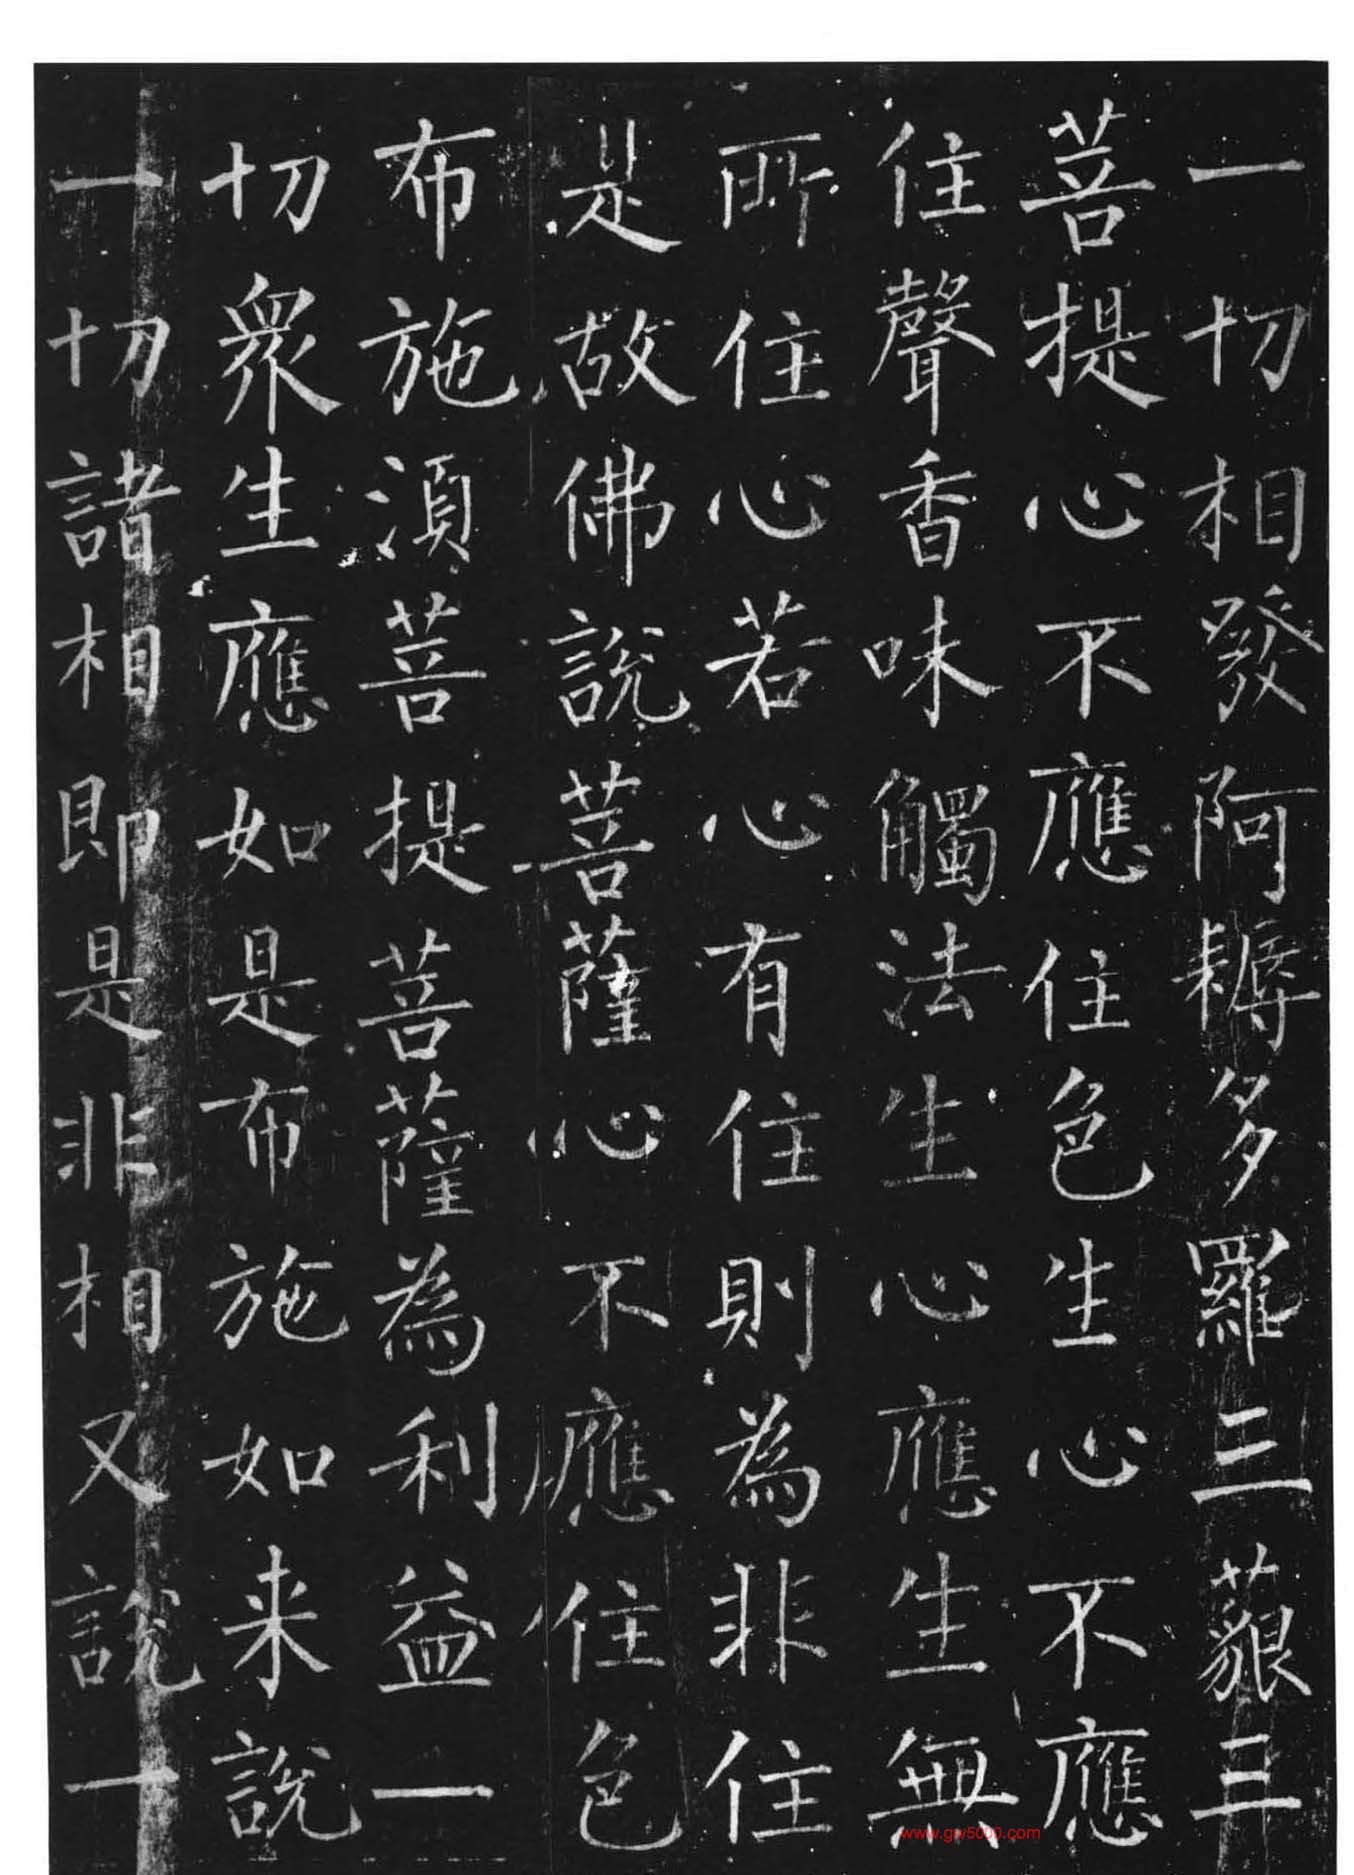 一切相發阿耨多羅三藐三
菩提心不應住色生心不應
住聲香味觸法生心應生無
所住心若心有住則為非住
是故佛說菩薩心不應住色
布施須菩提菩薩為利益一
切眾生應如是布施如来說
一切諸相即是非相又說一
www.gw5000.com